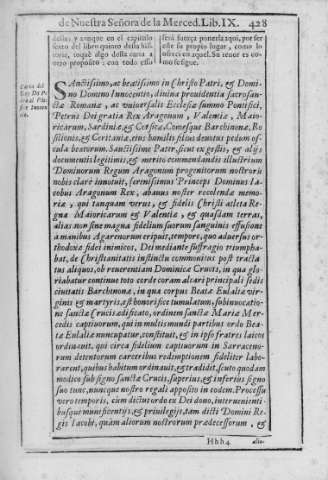 de Nuestra Señora de la Merced. Lib. IX. 428
dellas; y aunque en el capitulo
sexto del libro quinto desta historia,
toquè algo desta carta a
otro proposito; con todo esso
serà fuerça ponerla aqui, por ser
este su propio lugar, como lo
usofeci en aquel. Su tenor es como
se sigue.
Carta del
Rey Dō Pedro
al Pōtifice
Innocencio.
SAnctissimo, ac beatissimo in Christo Patri, & Domino
Domino Innocentio, divina providentia sacrosanctæ
Romanæ, ac vniversalis Ecclesiæ summo Pontifici,
Petrus Dei gratia Rex Aragonum, Valentiæ, Maioricarum,
Sardiniæ, & Corsicæ, Comesque Barchinonæ, Rosilionis,
& Ceritaniæ, eius humilis filius devotus pedum oscula
beatorum. Sanctissime Pater, sicut ex gestis, & alijs
documentis legitimis, & merito commendandis illustrium
Dominorum Regum Aragonum progenitorum nostrorum
nobis clarè innotuit, serenissimus Princeps Dominus Iacobus
Aragonum Rex, abavus noster recolendæ memoriæ
, qui tanquam verus, & fidelis Christi atleta Regna
Maioricarum & Valentiæ, & quasdam terras,
alias non sine magna fidelium suorum sanguinis effusione
à manibus Agarenorum eripuit, tempore, quo adversus orthodoxæ
fidei inimicos, Dei mediante suffragio triumphabat,
de Christianitatis instinctu commonitus post tractatus
aliquos, ob reverentiam Dominicæ Crucis, in qua gloriabatur
continuo toto corde coram altari principali sedis
civitatis Barchinonæ, in qua corpus Beatæ Eulaliæ virginis
& martyris, est honorificè tumulatum, sub invocatione
sanctæ Crucis ædificato, ordinem sanctæ Mariæ Mercedis
captivorum, qui in multis mundi partibus ordo Beatæ
Eulaliæ nuncupatur, constituit, & in ipso fratres laicos
ordinavit, qui circa fidelium captivorum in Sarracenorum
detentorum carceribus redemptionem fideliter laborarent,
quibus habitum ordinavit, & tradidit, scuto quodam
modico sub signo sanctæ Crucis, superius, & inferius signo
suo tunc, nuncque nostro regali apposito in eodem. Processu
vero temporis, cum dictus ordo ex Dei dono, intervenientibusque
munificentijs, & privilegijs, tam dicti Domini Regis
Iacobi, quàm aliorum nostrorum prædecessorum, &
Hhh4 alio-